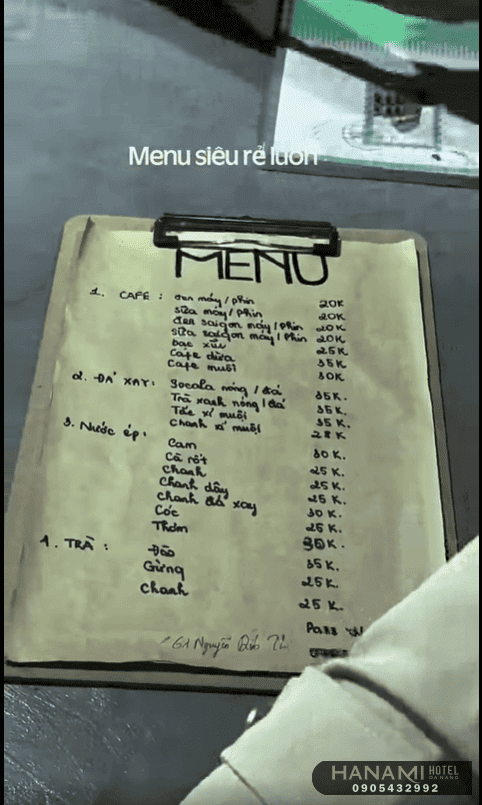 Menu siêu rẻ luôn
MENU
1. CAFE : đen máy / phin 20K
sữa máy / phin 20K
đen saigon máy / phin 20K
sữa saigon máy / phin 20K
bạc xỉu 25K
Cafe dừa 35K
Cafe muối 30K
2. ĐÁ XAY: Socola nóng / đá 35K.
Trà xanh nóng / đá 35K.
Tắc xí muội 35K.
chanh xí muội 28K
3. Nước ép: Cam 30K.
Cà rốt 25K.
Chanh 25K.
Chanh dây 25K.
chanh đá xay 30K.
Cóc 25K.
Thơm 30K.
4. TRÀ : Đào 35K.
Gừng 25K.
chanh 25K.
Pass
61 Nguyễn
HANAMI HOTEL
DA NANG
0905432992